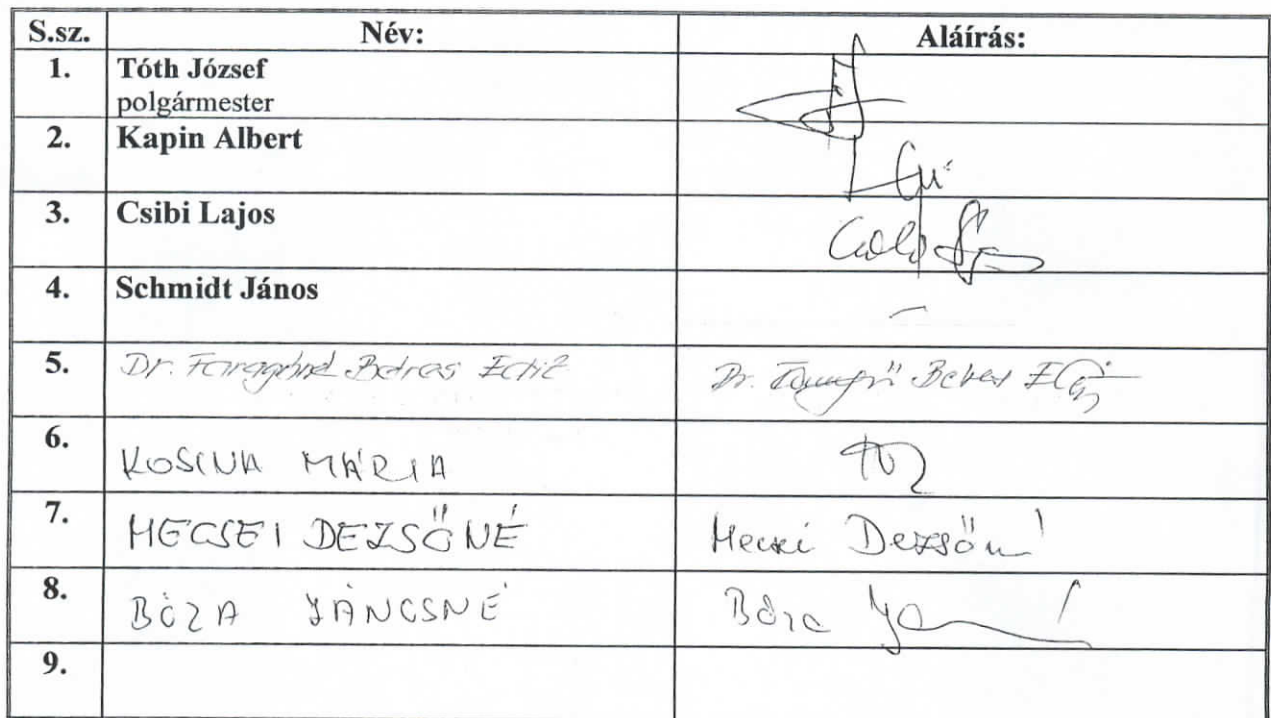 S.sz. Név: Aláírás:
1. Tóth József
polgármester
2. Kapin Albert
3. Csibi Lajos
4. Schmidt János
5. Dr. Faragóné Edit Dr.
6. KOSINA MÁRIA
7. MECSEI DEZSŐNÉ Mecsei Dezsőné
8. BÓZA JÁNOSNÉ Bóza
9.